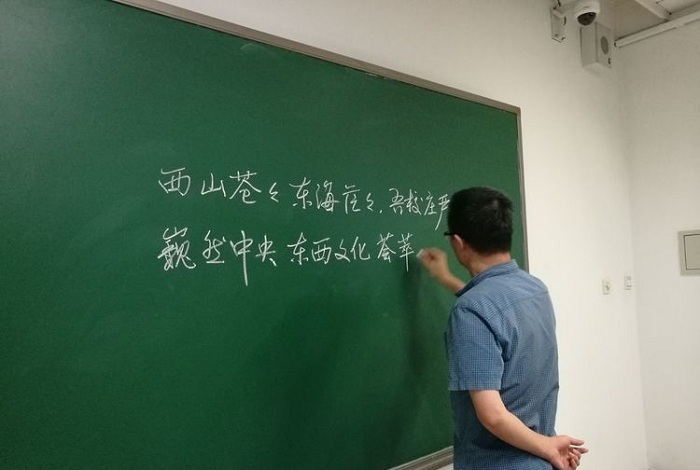 西山苍々东海茫々.吾校庄严
巍然中央 东西文化荟萃